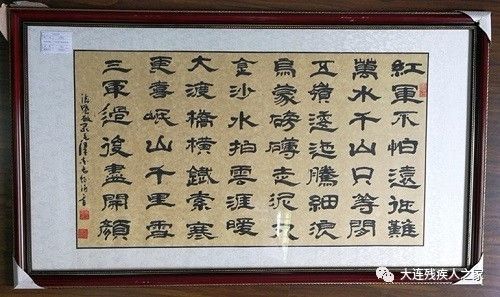 紅軍不怕遠征難
萬水千山只等閒
五嶺逶迤騰細浪
烏蒙磅礴走泥丸
金沙水拍雲涯暖
大渡橋橫鐵索寒
更喜岷山千里雪
三軍過後盡開顏
大连残疾人之家